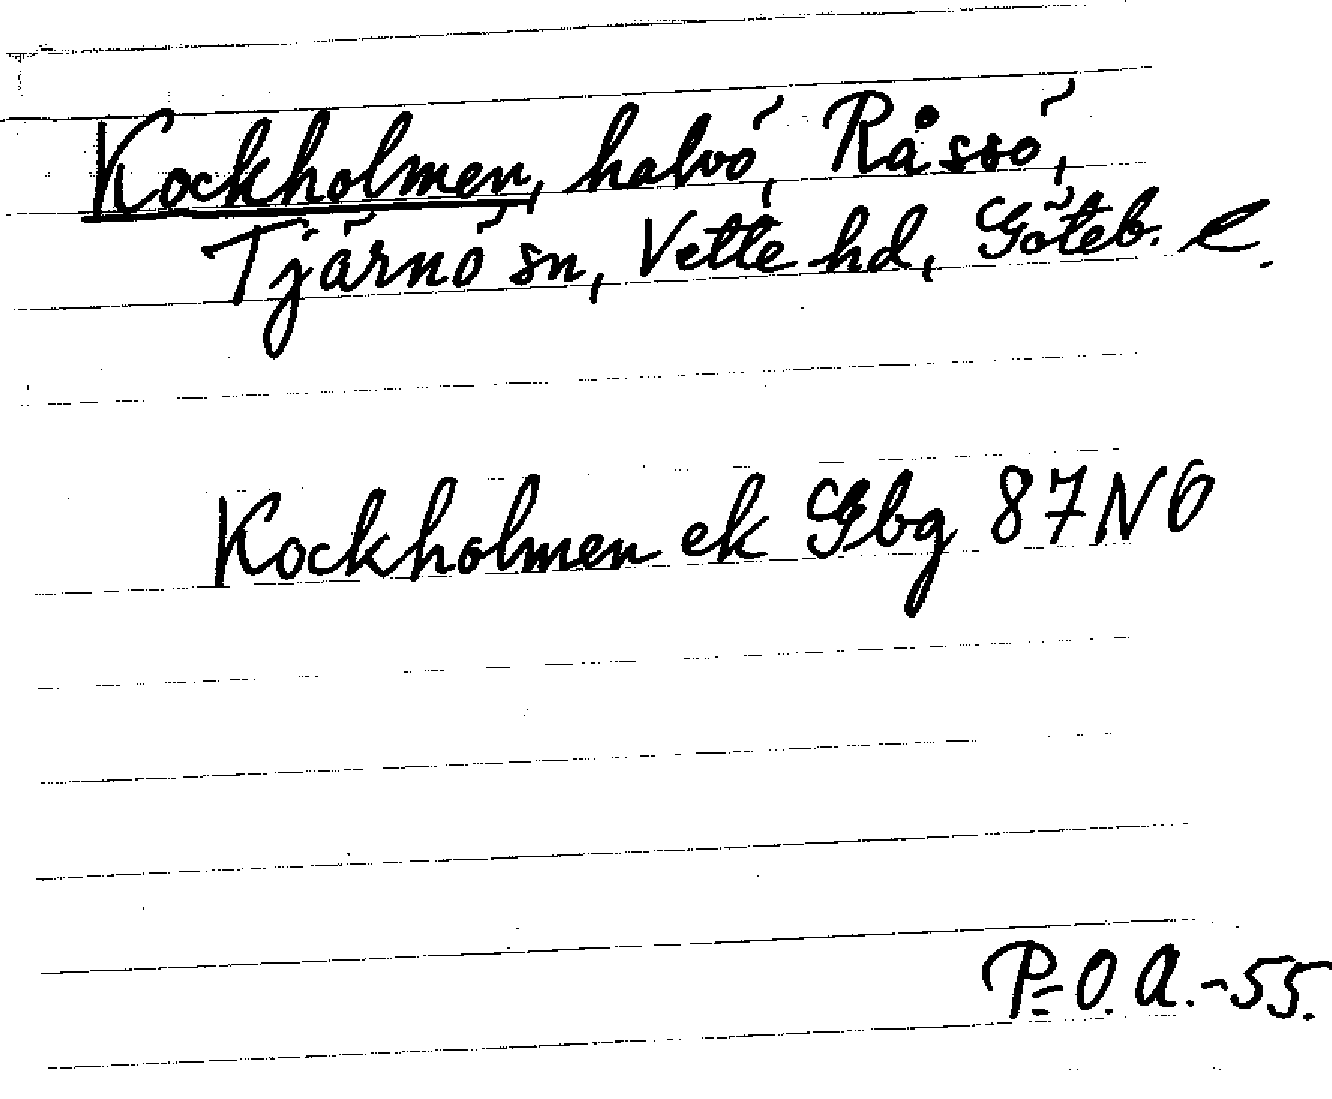 Kockholmen, halvö, Råssö,
Tjärnö sn, Vette hd, Göteb. l.
Kockholmen ek Gbg 87 NO
P-O. A.-55.